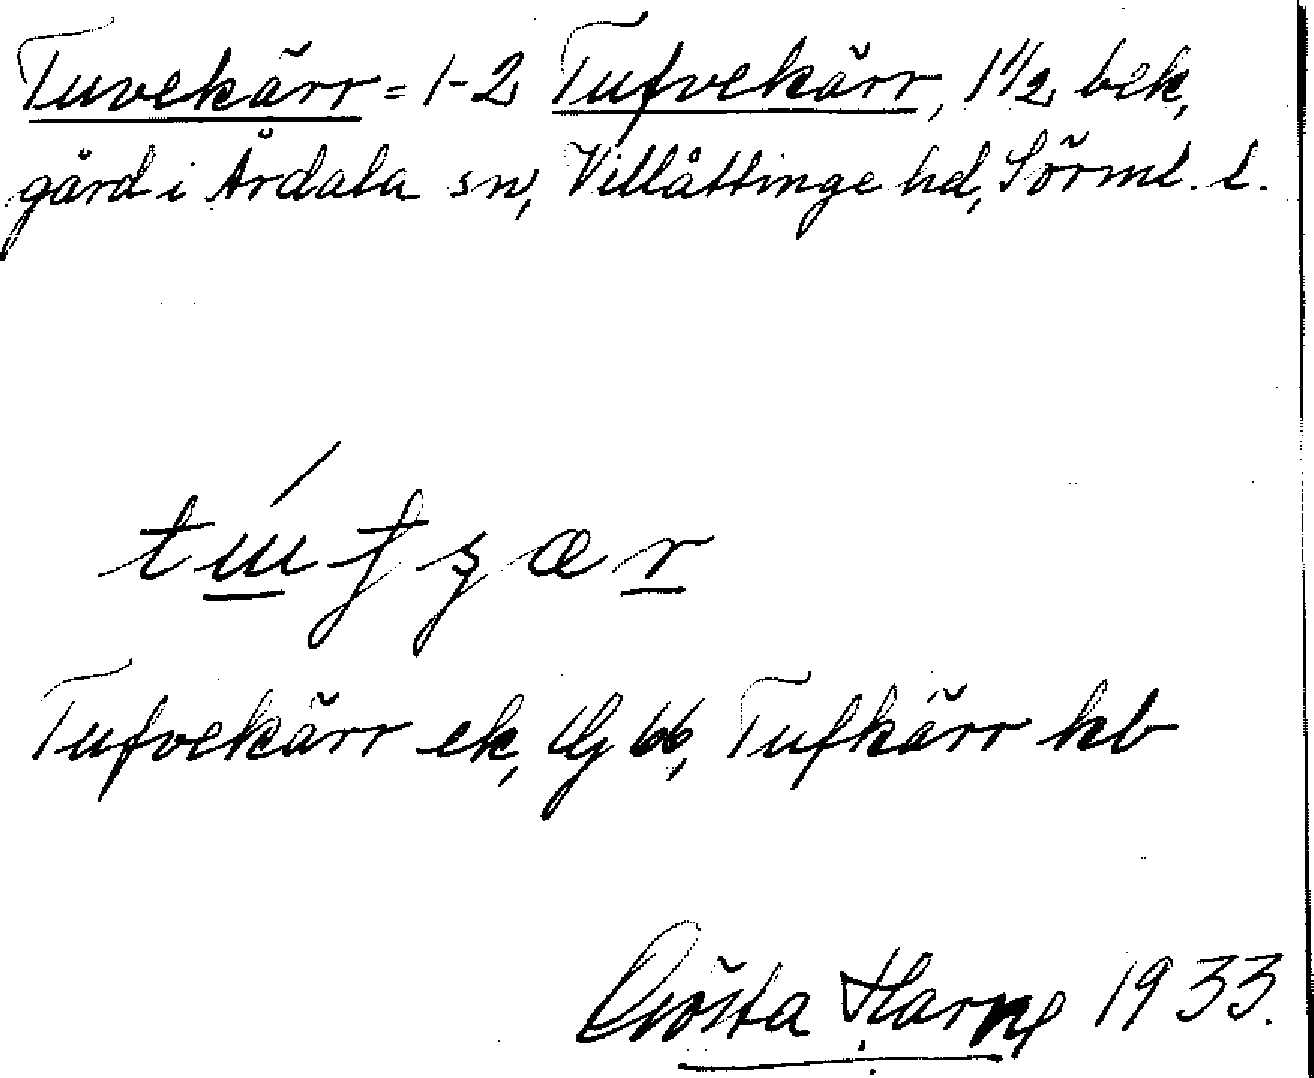 Tuvekärr = 1-2 Tufvekärr, 1 1/2 bek,
gård i Årdala sn, Villåttinge hd, Sörml. l.
Tufvekärr ek, Tufkärr kb
Gösta Harng 1933.